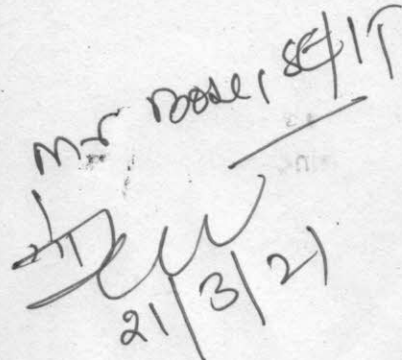 Mr Bose, SE/IT
21/3/21